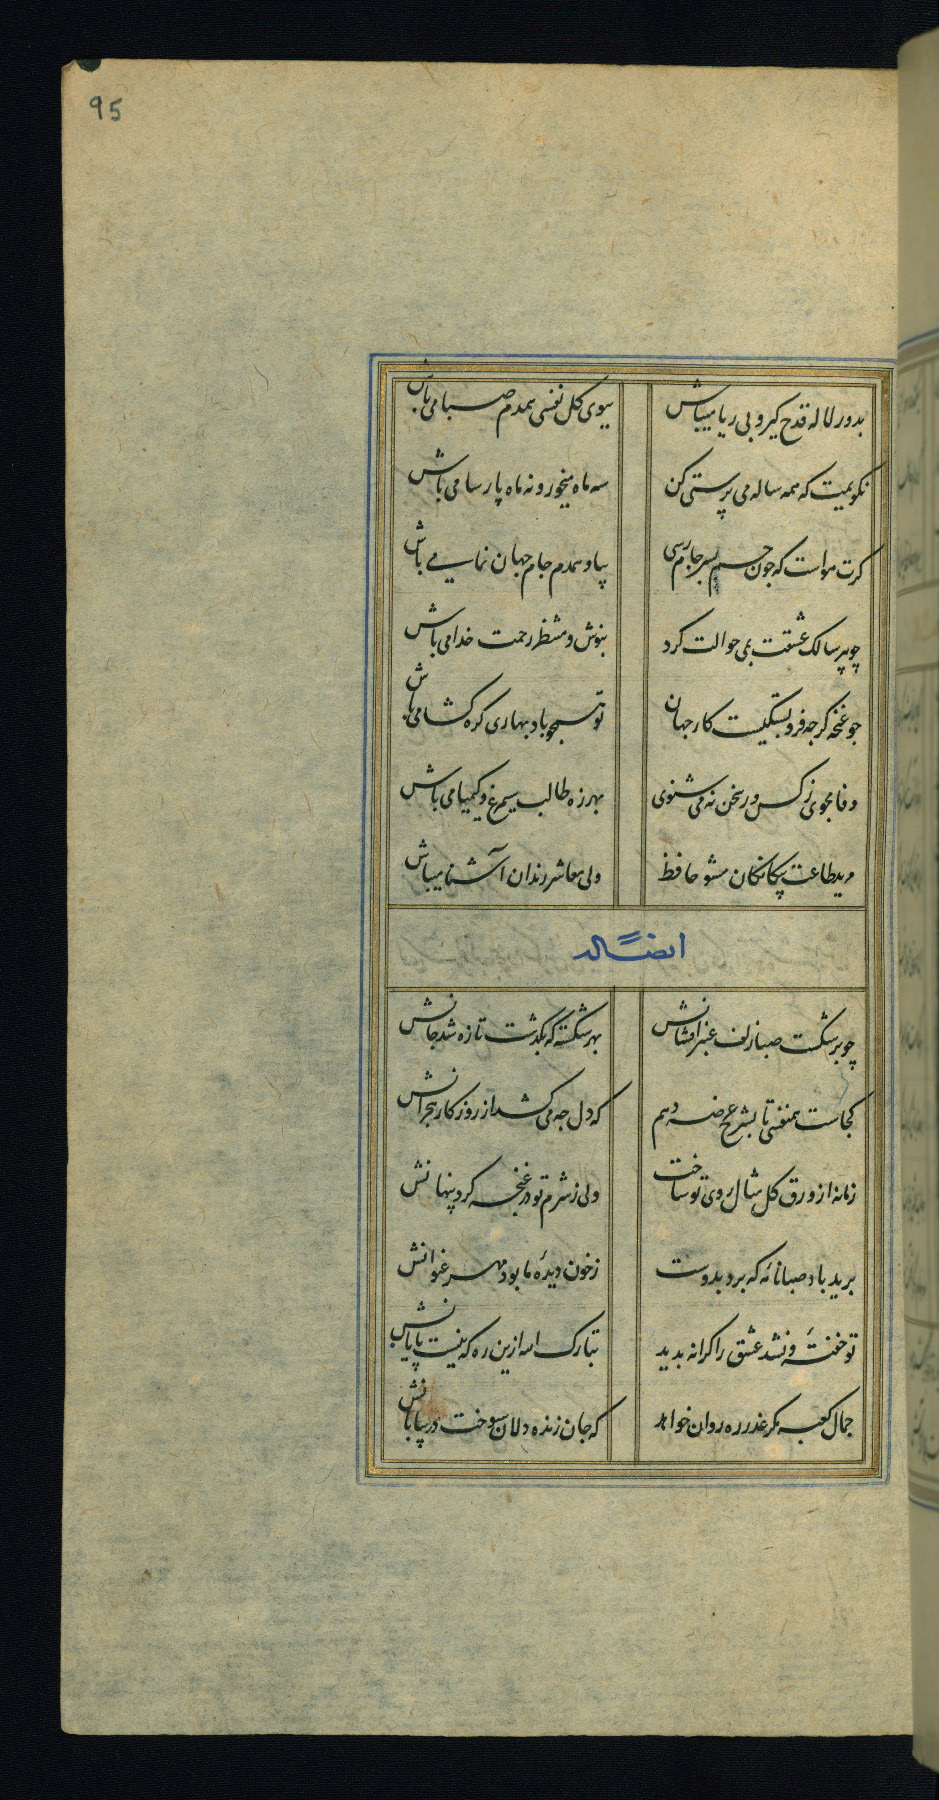 95
بدور لاله قدح کیر و بی ریا میباش
ببوی کل نفسی همدم صبا می باش
نکویمت که همه ساله می پرستی کن
سه ماه میخور و نه ماه پارسا می باش
کرت هواست که چون جم بسر جام رسی
بیا و همدم جام جهان نما می باش
چو پیر سالک عشقت بمی حوالت کرد
بنوش و منتظر رحمت خدا می باش
جو غنچه کرجه فروبستکیست کار جهان
تو همجو باد بهاری کره کشا می باش
وفا مجوی ز کس ور سخن نمی شنوی
بهرزه طالب سیمرغ و کیمیا می باش
مرید طاعت بیکانکان مشو حافظ
ولی معاشر رندان آشنا میباش
ایضاً له
چو بر شکست صبا زلف عنبر افشانش
بهر شکسته که بکذشت تازه شد جانش
کجاست همنفسی تا بشرح عرضه دهم
که دل جه می کشد از روزکار هجرانش
زمانه از ورق کل مثال روی تو ساخت
ولی ز شرم تو در غنچه کرد پنهانش
برید باد صبا نامٔه که برد بدوست
ز خون دیدٔه ما بود مهر عنوانش
تو خفتهٔ و نشد عشق را کرانه بدید
تبارک الله ازین ره که نیست پایانش
جمال کعبه مکر عذر ره روان خواهد
که جان زنده دلان سوخت در بیابانش